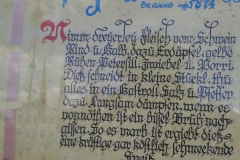 Nimm dreyerley Fleisch vom Schwein
Rind u. Kalb, dazu Erdäpfel, gelbe
Rüben Petersil, Zwiebel u. Porri
Dich schneid in kleine Stückel, thu
alles in ein Kastroll, Salz u. Pfeffer
dazu, Langsam dämpfen, wenn es
vonnöthen ist ein bissel Brüh nach-
gissen. So es mark ist ergiebt dies
eine kräftige gar köstlich schmeckende
Speis